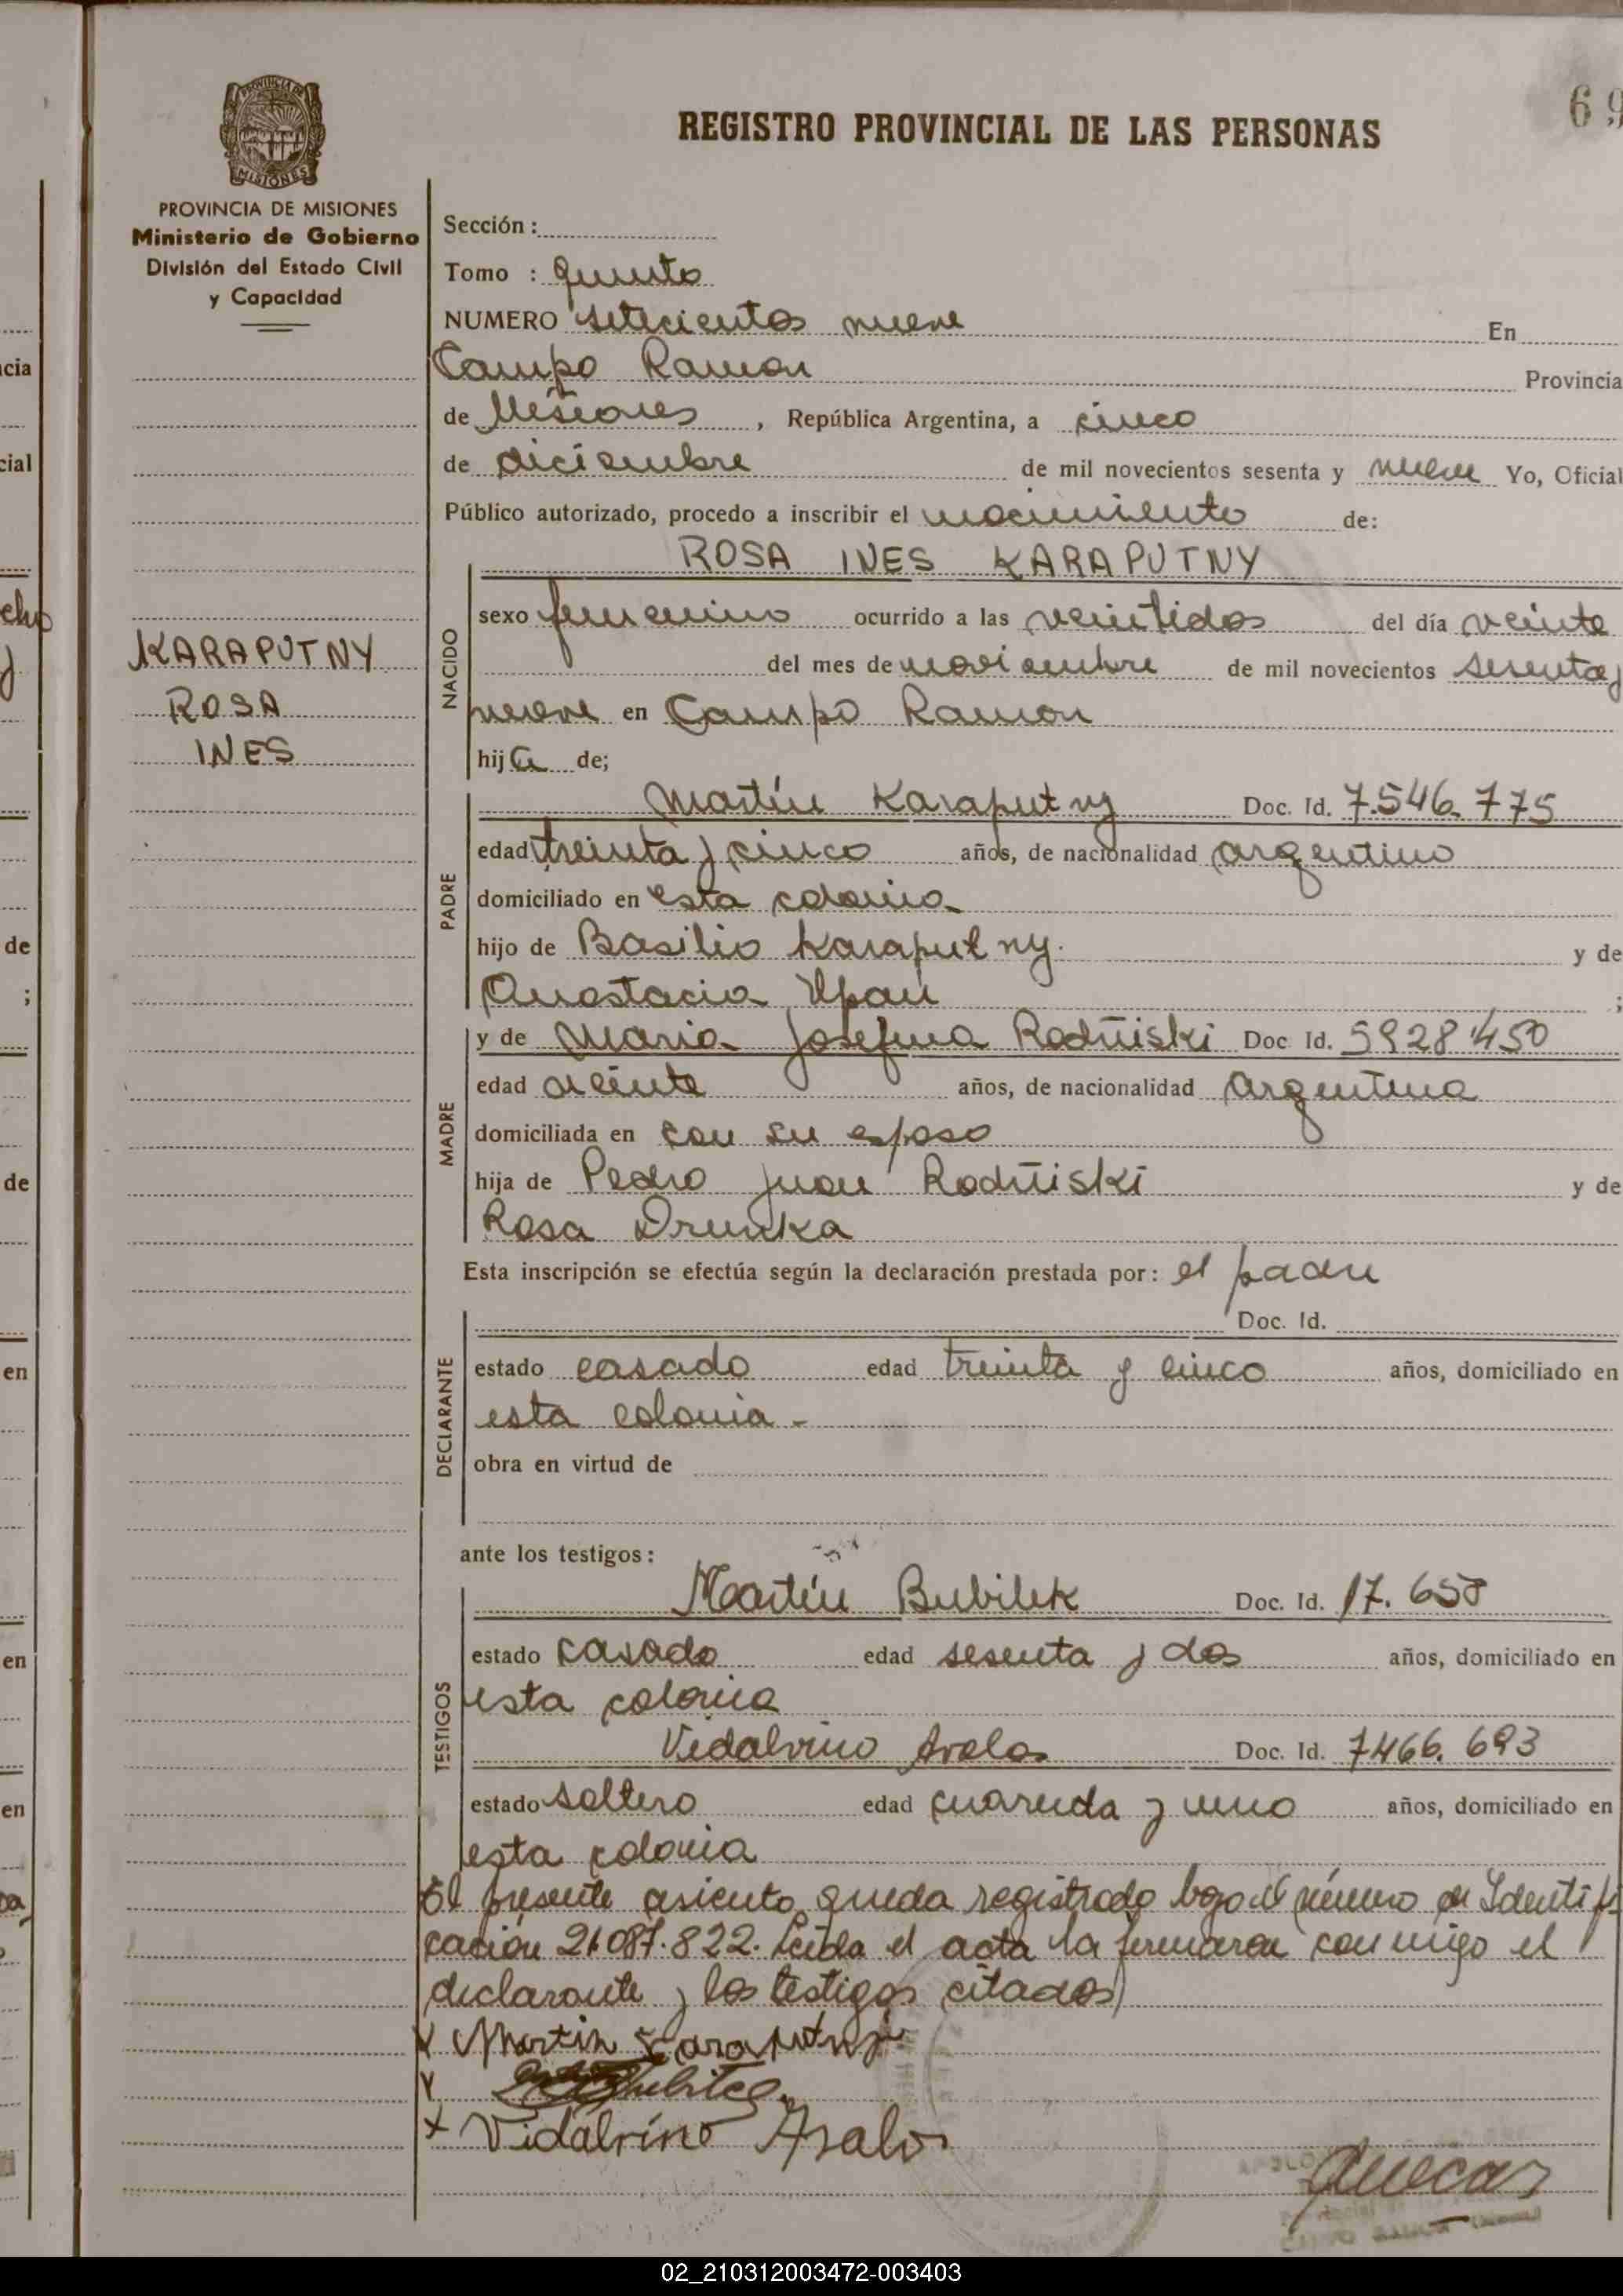 69
REGISTRO PROVINCIAL DE LAS PERSONAS
MISIONES
PROVINCIA DE MISIONES
Ministerio de Gobierno
División del Estado Civil
y Capacidad
Sección :
Tomo : quinto
NUMERO setecientos nueve En
Campo Ramon Provincia
de Misiones , República Argentina, a cinco
de diciembre de mil novecientos sesenta y nueve Yo, Oficial
Público autorizado, procedo a inscribir el nacimiento de:
ROSA INES KARAPUTNY
KARAPUTNY
ROSA
INES
NACIDO
sexo femenino ocurrido a las veintidos del día veinte
del mes de noviembre de mil novecientos sesenta y
nueve en Campo Ramon
hija de;
PADRE
Martín Karaputny Doc. Id. 7.546.775
edad treinta y cinco años, de nacionalidad argentino
domiciliado en esta colonia
hijo de Basilio Karaputny. y de
Anastacia ;
MADRE
y de Maria Josefina Rodñiski Doc Id. 5928450
edad veinte años, de nacionalidad argentina
domiciliada en con su esposo
hija de Pedro Juan Rodñiski y de
Rosa Drunka
Esta inscripción se efectúa según la declaración prestada por: el padre
DECLARANTE
Doc. Id.
estado casado edad treinta y cinco años, domiciliado en
esta colonia -
obra en virtud de
ante los testigos:
TESTIGOS
Martín Bubilek Doc. Id. 17. 658
estado casado edad sesenta y dos años, domiciliado en
esta colonia
Vidalvino Avalos Doc. Id. 7466. 693
estado soltero edad cuarenda y uno años, domiciliado en
esta colonia
El presente asiento queda registrado bajo el número de Identifi
cación 21.087.822. Leida el acta la firmaron conmigo el
declarante y los testigos citados)
x Martin Karaputny
x
x Vidalvino Avalos
02_210312003472-003403